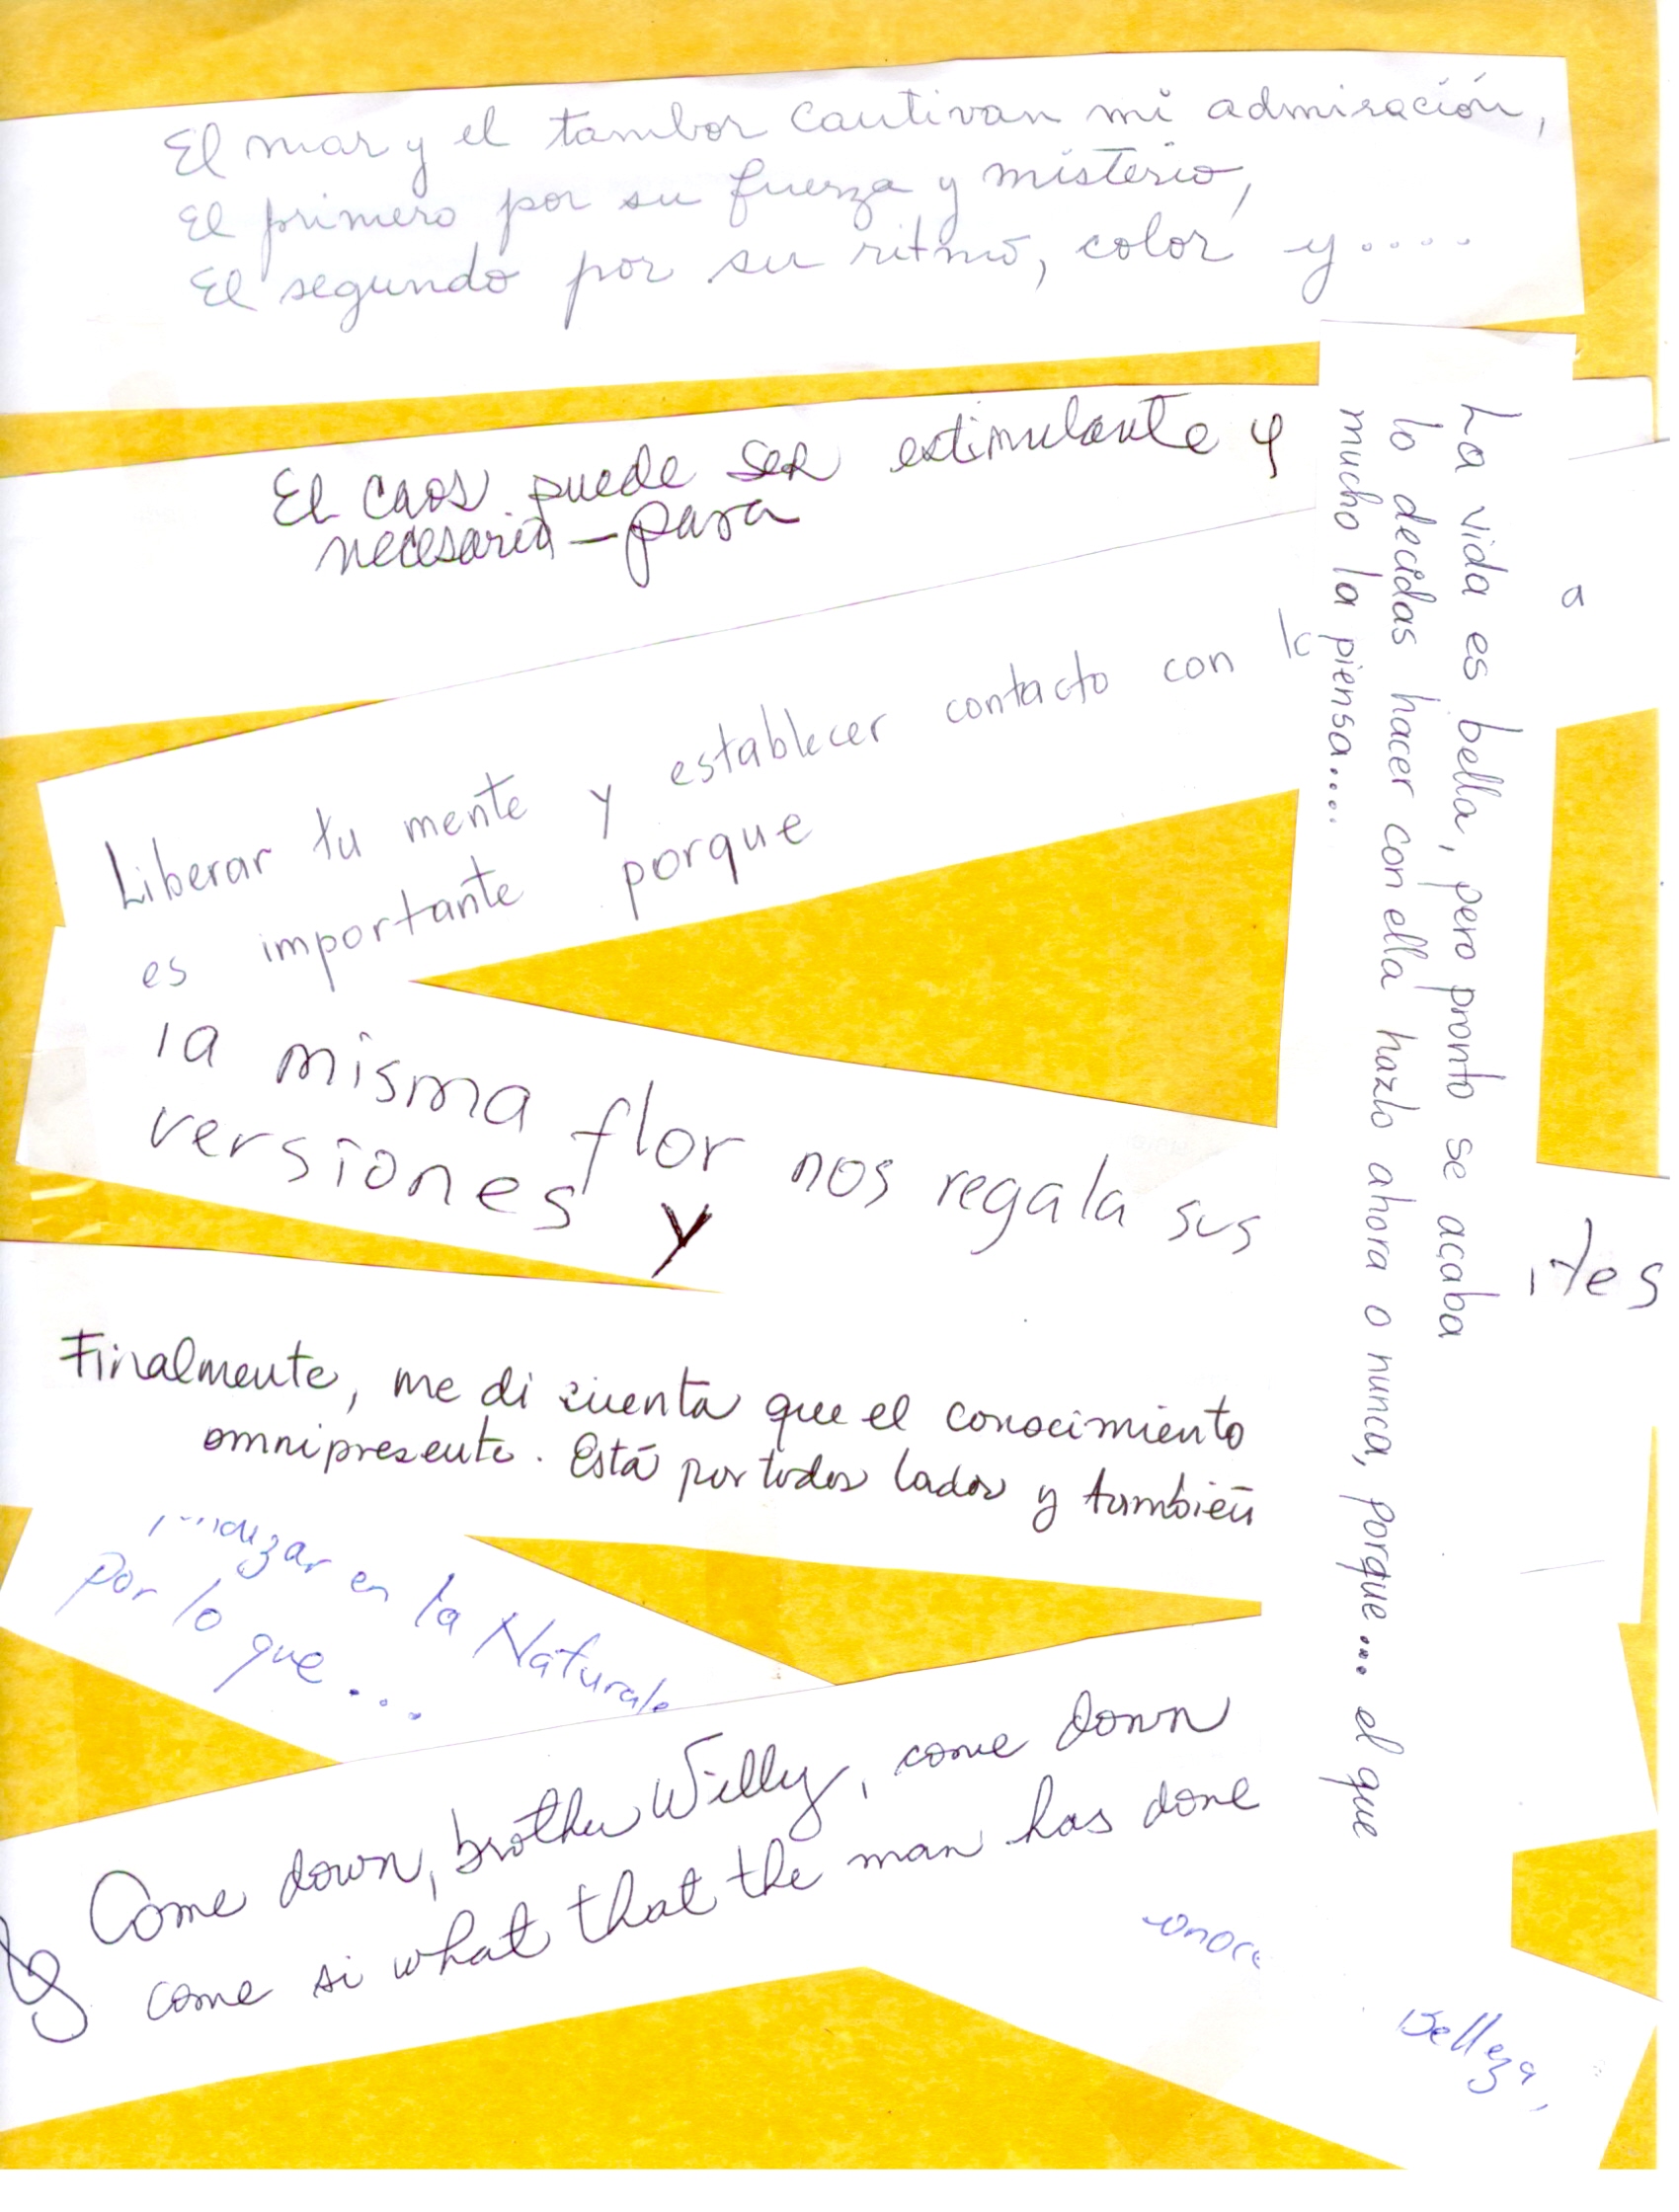 El mar y el tambor cautivan mi admiración,
El primero por su fuerza y misterio,
El segundo por su ritmo, color y....
El caos puede ser estimulante y
necesario – para
Liberar tu mente y establecer contacto con
es importante porque
la misma flor nos regala sus
versiones y
Finalmente, me di cuenta que el conocimiento
omnipresente. Está por todos lados y también
en la Naturale
por lo que...
Come down, brother Willy, come down
come si what that the man has done
La vida es bella, pero pronto se acaba
lo decidas hacer con ella hazlo ahora o nunca, porque... el que
mucho la piensa....
a
ites
onoce
Belleza,